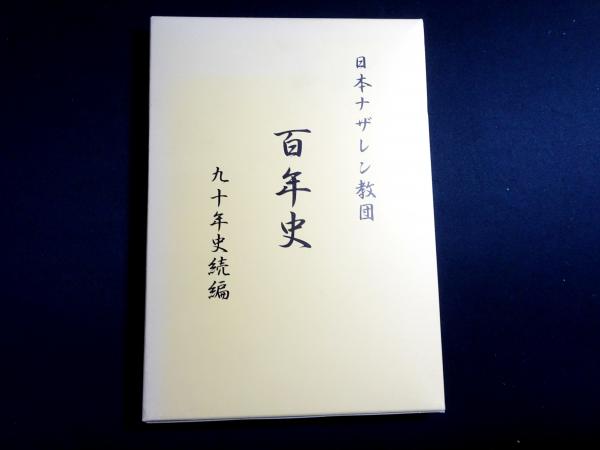 日本ナザレン教団
百年史
九十年史続編